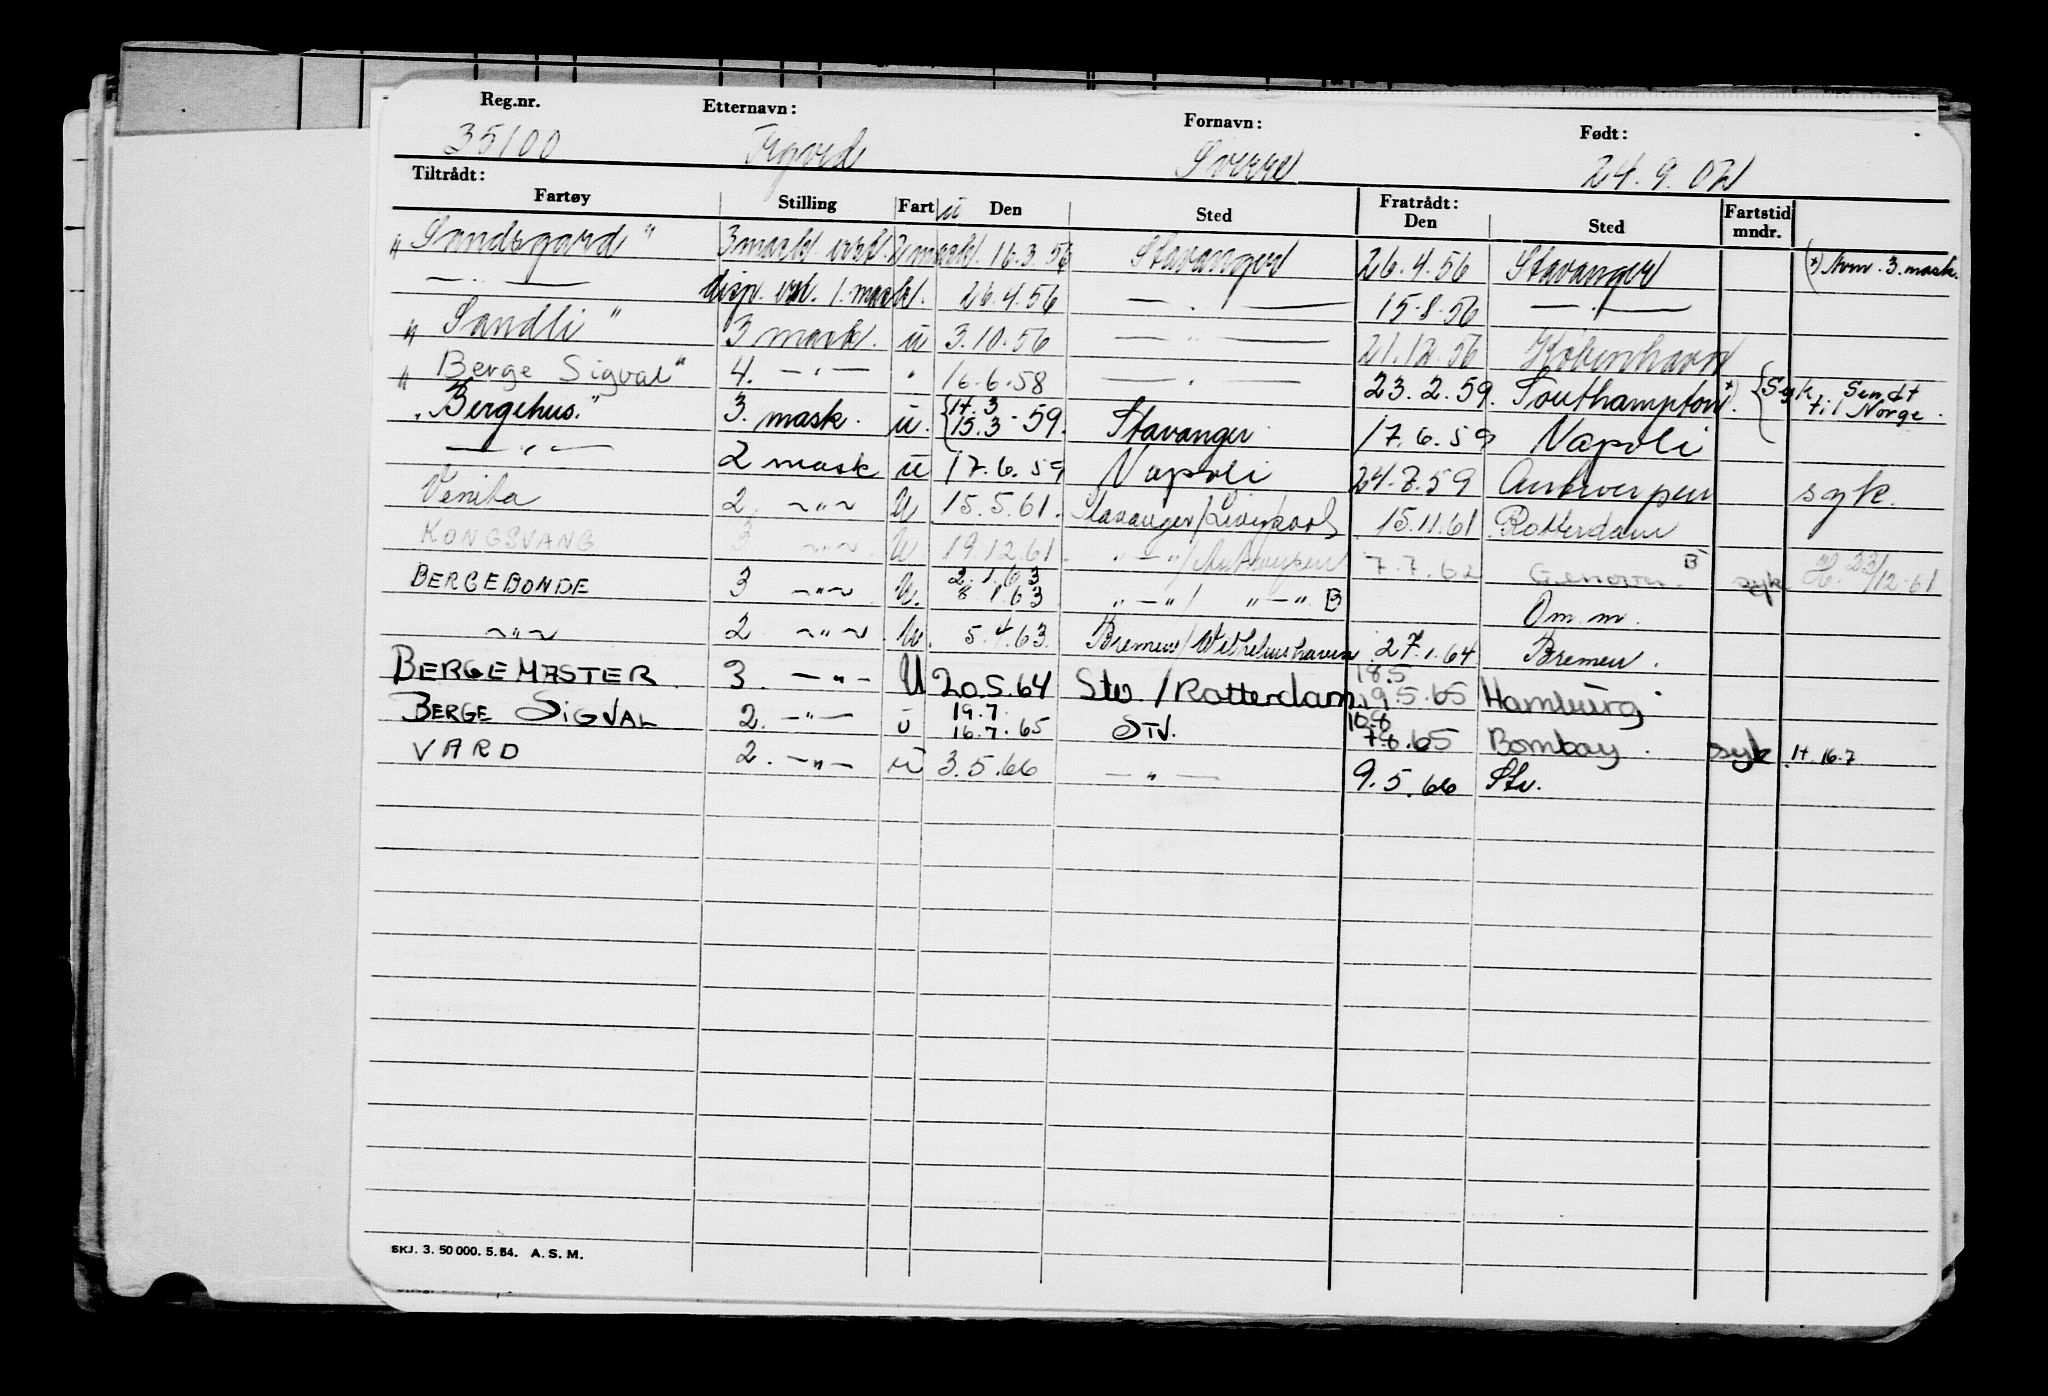 Reg.nr. Etternavn: Fornavn: Født:
35100 Tigved Sverre 24.9.02
Tiltrådt: Fratrådt:
Fartøy Stilling Fart Den Sted Den Sted Fartstid mndr.
"Sandsgard" 3 mask. 2 mask. u 16.3.56 Stavanger 26.4.56 Stavanger *) 3. mask.
— " — disp. 1. mask. 26.4.56 — " — 15.8.56 — " —
"Sandli" 3 mask. u 3.10.56 — " — 21.12.56 København
"Berge Sigval" 4. — " — " 16.6.58 — " — 23.2.59. Southampton *) {Syk Sendt til Norge.
"Bergehus." 3. mask. u. {1t.3 15.3 - 59. Stavanger 17.6.59 Napoli
— " — 2 mask u 17.6.59 Napoli 24.8.59 Antwerpen syk.
Venita 2. ~"~ U 15.5.61. Stavanger/Liverpool 15.11.61 Rotterdam
KONGSVANG 3 ~"~ U 19.12.61. " — "/Antwerpen 7.7.62 Genova. B syk H. 23/12-61
BERGEBONDE 3 ~"~ U. 2.1.63 8.1.63 " — "/ " — " B Om.m.
~"~ 2 ~"~ U. 5.4.63. Bremen/Wilhelmshaven 27.1.64 Bremen.
BERGEMASTER 3. — " — U 20.5.64 Stv./Rotterdam 18.5 19.5.65 Hamburg
BERGE SIGVAL 2. — " — u 19.7. 16.7.65 STV. 10.8 7.8.65 Bombay. syk 1t. 16.7
VARD 2. — " — u 3.5.66 — " — 9.5.66 Stv.
SKJ. 3. 50 000. 5. 54. A. S. M.